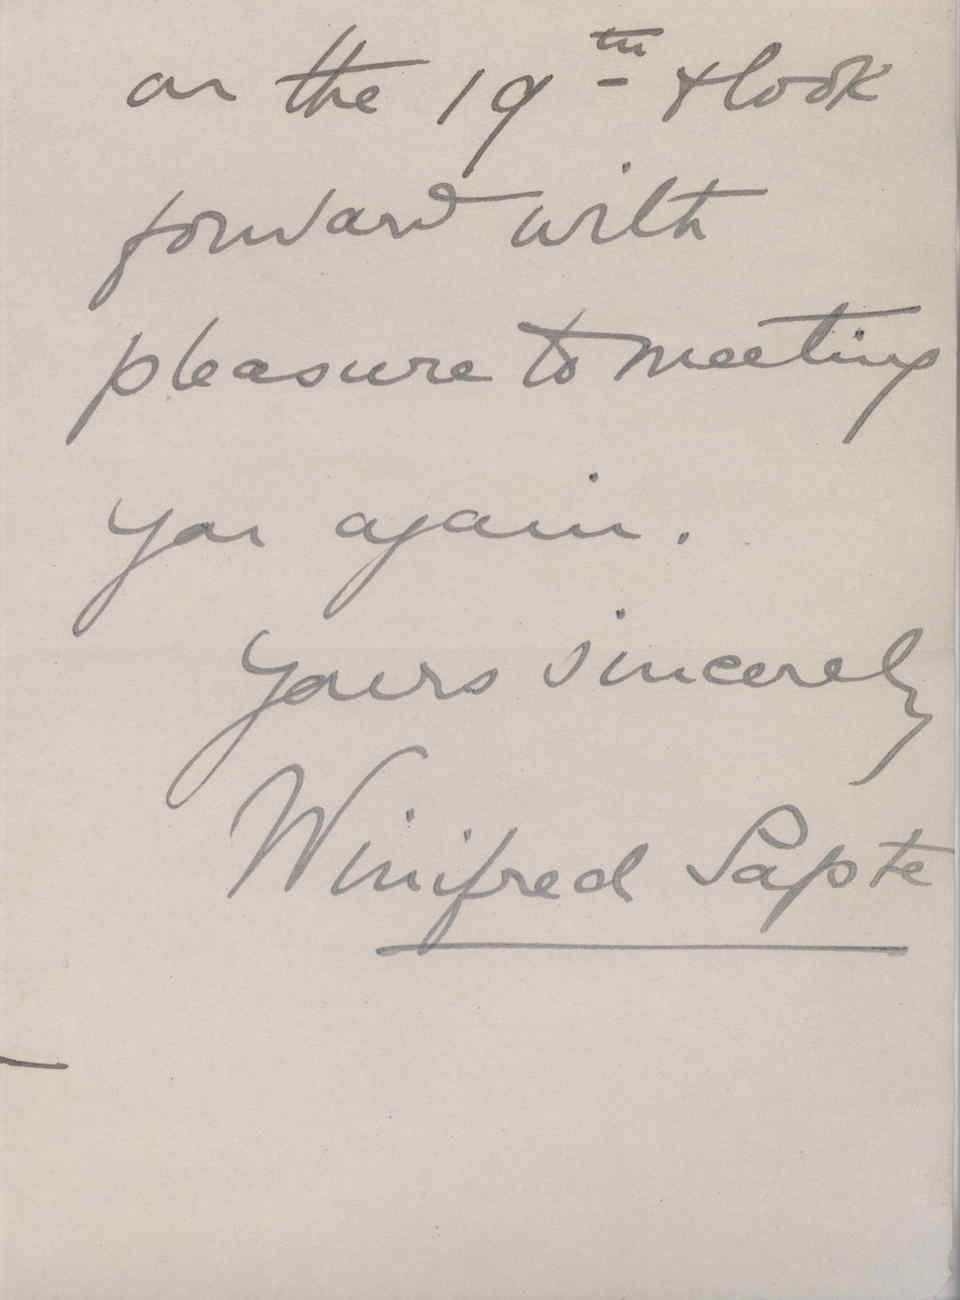 on the 19th & look
forward with
pleasure to meeting
you again.
Yours sincerely
Winifred Sapte